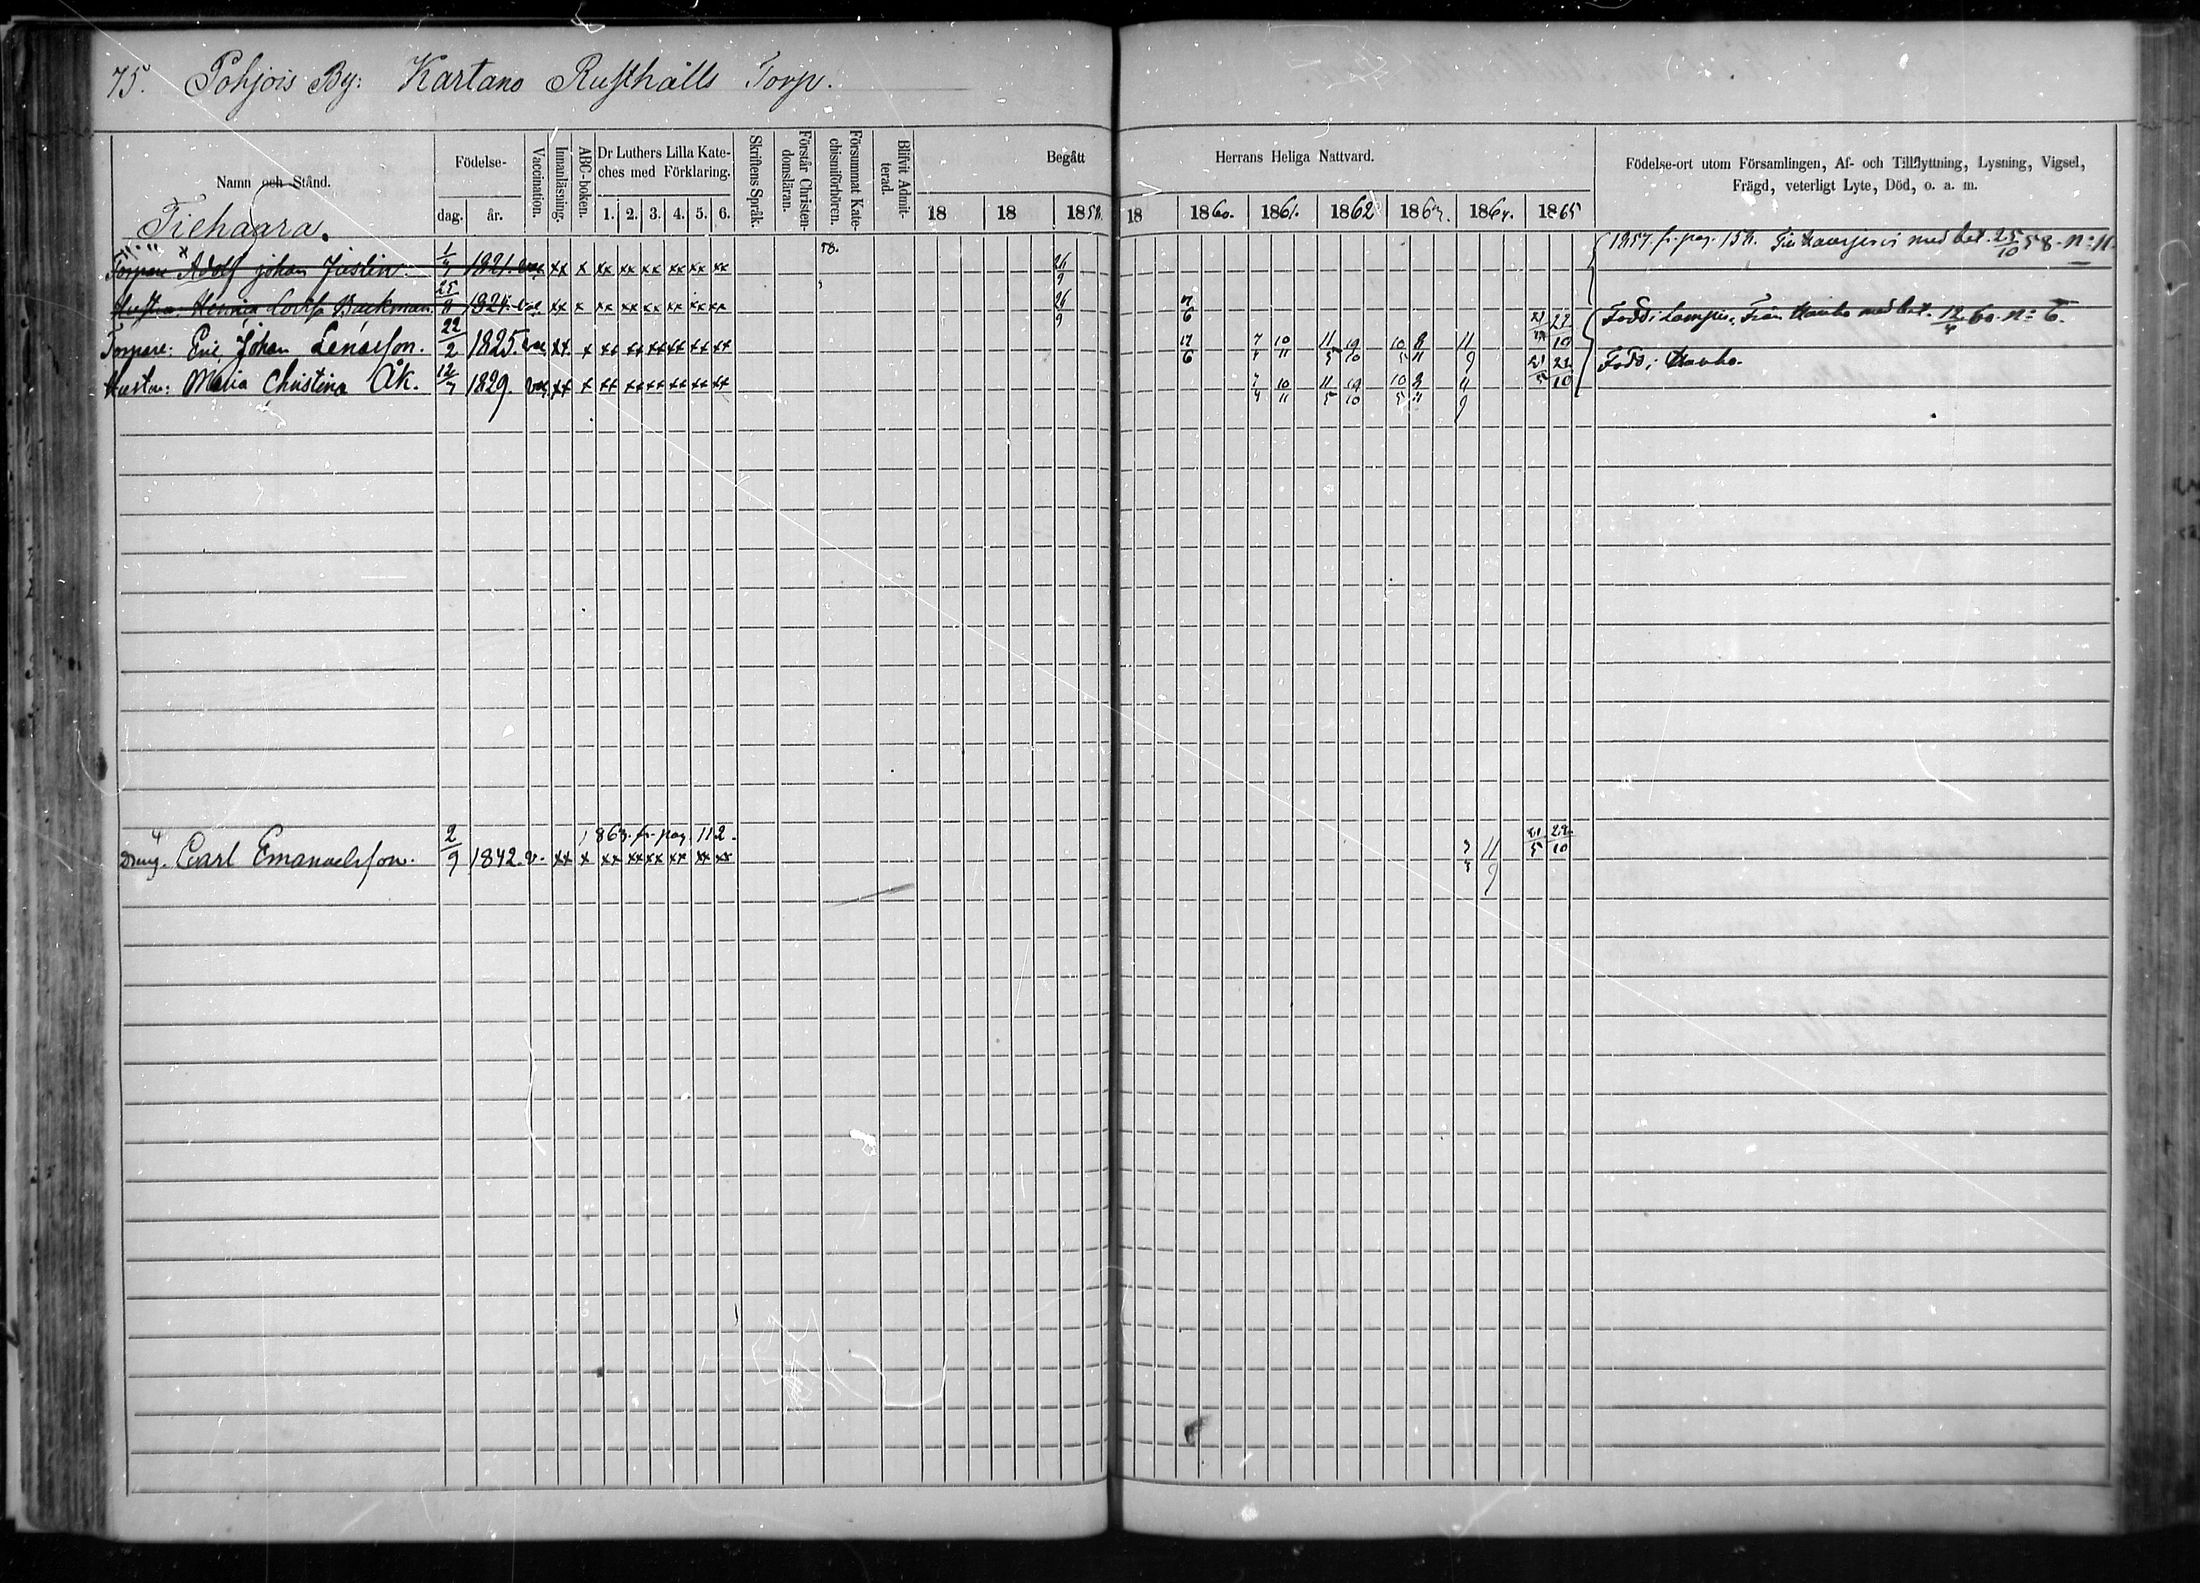 75. Pohjois By: Kartano Rusthålls Torp.
Namn och Stånd.
Födelse-
dag. år.
Vaccination.
Innanläsning.
ABC-boken.
Dr Luthers Lilla Kate-
ches med Förklaring.
1. 2. 3. 4. 5. 6.
Skriftens Språk.
Förstår Christen-
domsläran.
Försummat Kate-
chismiförhören.
Blifvit Admit-
terad.
Begått Herrans Heliga Nattvard.
18 18 1858. 18 1860. 1861. 1862 1863. 1864. 1865
Födelse-ort utom Församlingen, Af- och Tillflyttning, Lysning, Vigsel,
Frägd, veterligt Lyte, Död, o. a. m.
Tiehaara.
Torpare Adolf Johan Justin. 1821. xx x xx xx xx xx xx xx 58. 26/9 1857. fr. pag. 158. med bet. 25/10 58. n: 11.
Hustru: Backman. 25/8 1824. xx x xx xx xx xx xx xx 26/9
Torpare: Eric Johan Lenasson. 22/2 1825. vac. xx. x xx xx xx xx xx xx 17/6 10/11 11/5 19/10 10/5 8/11 11/9 22/10 Född i Lampis. Från Hauho med bet. 12/4 60. n: 6.
Hustru: Maria Christina Åk. 12/7 1829. vac. xx x xx xx xx xx xx xx 10/11 11/5 19/10 10/5 8/11 11/9 22/10 Född i Hauho.
1863. fr. pag. 112.
Dräng. Carl Emanuelsson. 2/9 1842. v. xx x xx xx xx xx xx xx 11/9 21/5 22/10